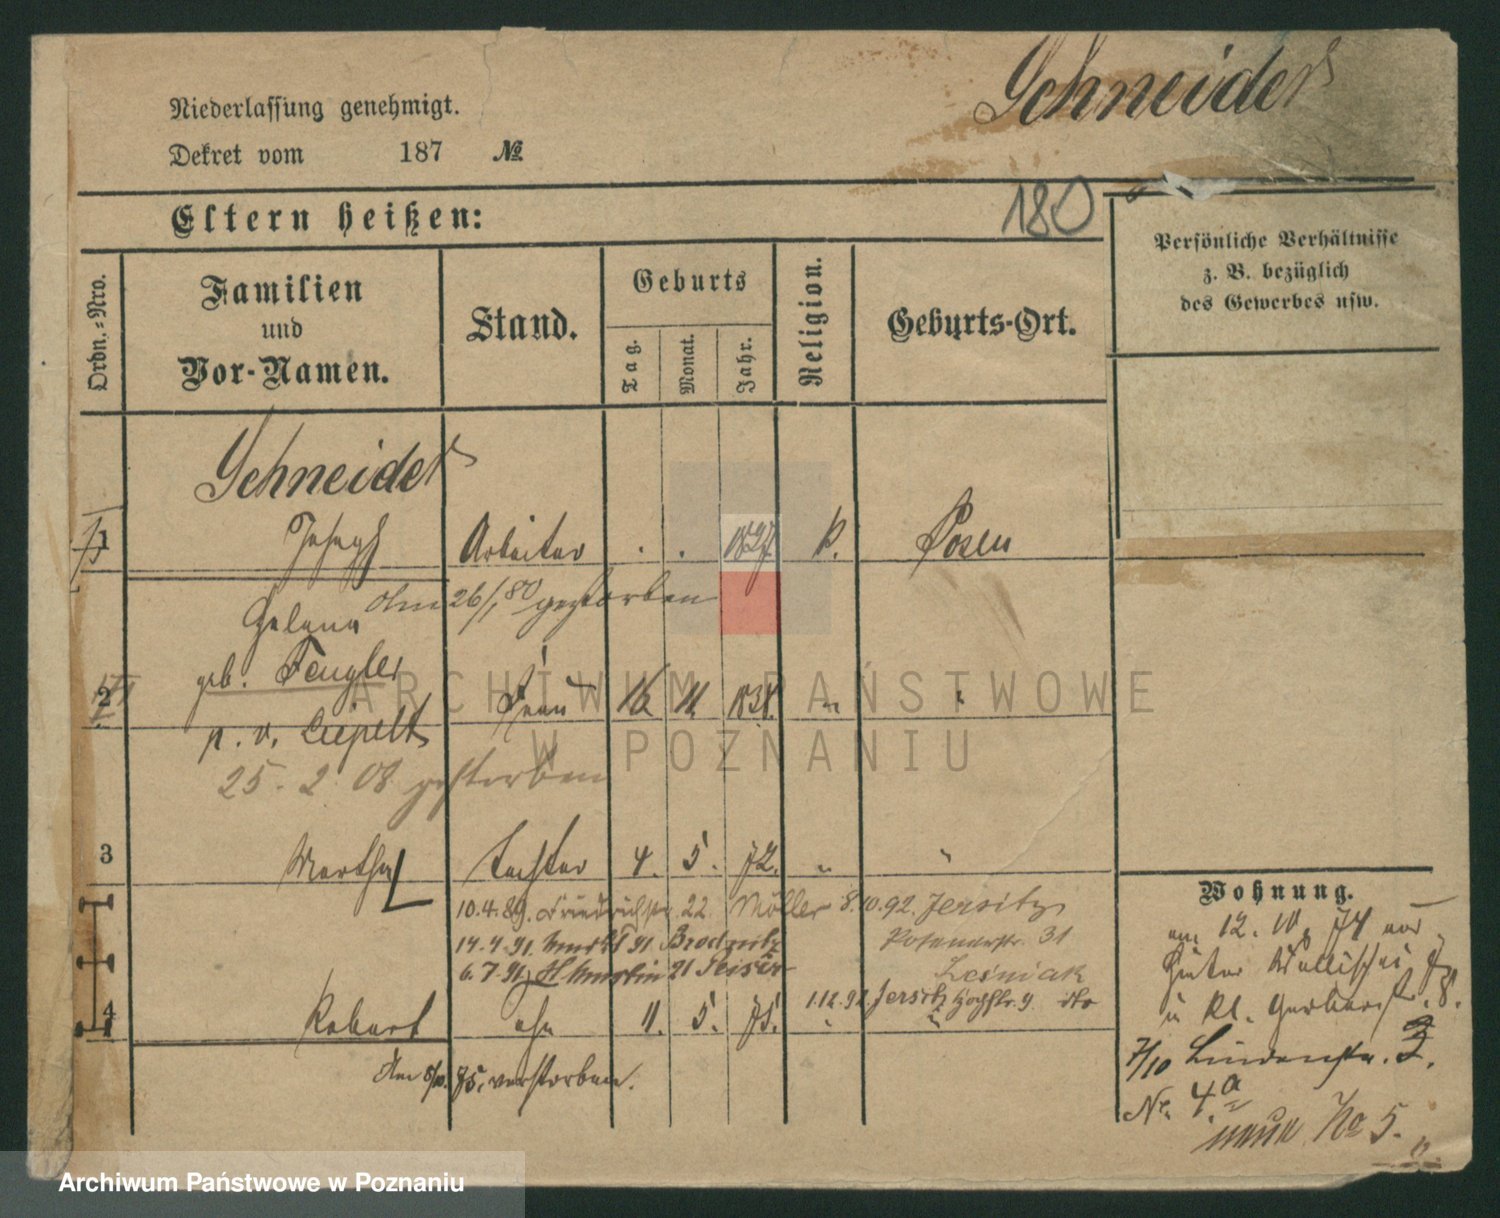 Schneider
Niederlassung genehmigt.
Dekret vom 187 №
180
Eltern heißen:
Persönliche Verhältnisse
z. B. bezüglich
des Gewerbes usw.
Ordn.=Nro.
Familien
und
Vor-Namen.
Stand.
Geburts
Tag.
Monat.
Jahr.
Religion.
Geburts-Ort.
Schneider
1 Joseph Arbeiter . . 1827 k. Posen
Am 26/1 80 gestorben
Helena
geb. Fengler
2 Frau 16 11 1838. " "
p. v. Liepelt
25. 2. 08 gestorben
3 Martha Tochter 4. 5. 72. " "
10.4.89. Friedrichstr. 22 Möller 8.10.92. Jersitz
14.4.91. 91. Posenerstr. 31
6.7.91. 21 Lesniak
1.12.92 Jersitz Hochstr. 9 dto
4 Robert 11. 5. 75. " "
Am 75. verstorben.
Wohnung.
am 12. 10. 74 von
u Kl. Gerberstr. 8.
7/10 Lindenstr. 3.
Nr. 4.a
neue No 5.
ARCHIWUM PAŃSTWOWE
W POZNANIU
Archiwum Państwowe w Poznaniu